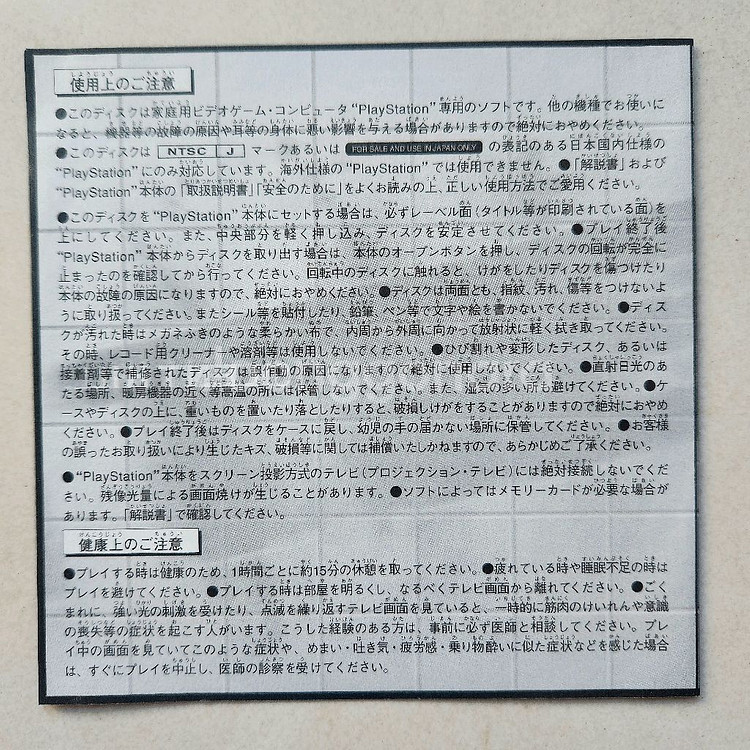 使用上のご注意
●このディスクは家庭用ビデオゲーム・コンピュータ“PlayStation”専用のソフトです。他の機種でお使いに
なると、機器等の故障の原因や耳等の身体に悪い影響を与える場合がありますので絶対におやめください。
●このディスクは NTSC J マークあるいは FOR SALE AND USE IN JAPAN ONLY の表記のある日本国内仕様の
“PlayStation”にのみ対応しています。海外仕様の“PlayStation”では使用できません。●「解説書」および
“PlayStation”本体の「取扱説明書」「安全のために」をよくお読みの上、正しい使用方法でご愛用ください。
●このディスクを“PlayStation”本体にセットする場合は、必ずレーベル面(タイトル等が印刷されている面)を
上にしてください。また、中央部分を軽く押し込み、ディスクを安定させてください。●プレイ終了後
“PlayStation”本体からディスクを取り出す場合は、本体のオープンボタンを押し、ディスクの回転が完全に
止まったのを確認してから行ってください。回転中のディスクに触れると、けがをしたりディスクを傷つけたり
本体の故障の原因になりますので、絶対におやめください。●ディスクは両面とも、指紋、汚れ、傷等をつけないよ
うに取り扱ってください。またシール等を貼付したり、鉛筆、ペン等で文字や絵を書かないでください。●ディス
クが汚れた時はメガネふきのような柔らかい布で、内周から外周に向かって放射状に軽く拭き取ってください。
その時、レコード用クリーナーや溶剤等は使用しないでください。●ひび割れや変形したディスク、あるいは
接着剤等で補修されたディスクは誤作動の原因になりますので絶対に使用しないでください。●直射日光のあ
たる場所、暖房機器の近く等高温の所には保管しないでください。また、湿気の多い所も避けてください。●ケ
ースやディスクの上に、重いものを置いたり落としたりすると、破損しけがをすることがありますので絶対におやめ
ください。●プレイ終了後はディスクをケースに戻し、幼児の手の届かない場所に保管してください。●お客様
の誤ったお取り扱いにより生じたキズ、破損等に関しては補償いたしかねますので、あらかじめご了承ください。
●“PlayStation”本体をスクリーン投影方式のテレビ(プロジェクション・テレビ)には絶対接続しないでくだ
さい。残像光量による画面焼けが生じることがあります。●ソフトによってはメモリーカードが必要な場合が
あります。「解説書」で確認してください。
健康上のご注意
●プレイする時は健康のため、1時間ごとに約15分の休憩を取ってください。●疲れている時や睡眠不足の時は
プレイを避けてください。●プレイする時は部屋を明るくし、なるべくテレビ画面から離れてください。●ごく
まれに、強い光の刺激を受けたり、点滅を繰り返すテレビ画面を見ていると、一時的に筋肉のけいれんや意識
の喪失等の症状を起こす人がいます。こうした経験のある方は、事前に必ず医師と相談してください。プレ
イ中の画面を見ていてこのような症状や、めまい・吐き気・疲労感・乗り物酔いに似た症状などを感じた場合
は、すぐにプレイを中止し、医師の診察を受けてください。